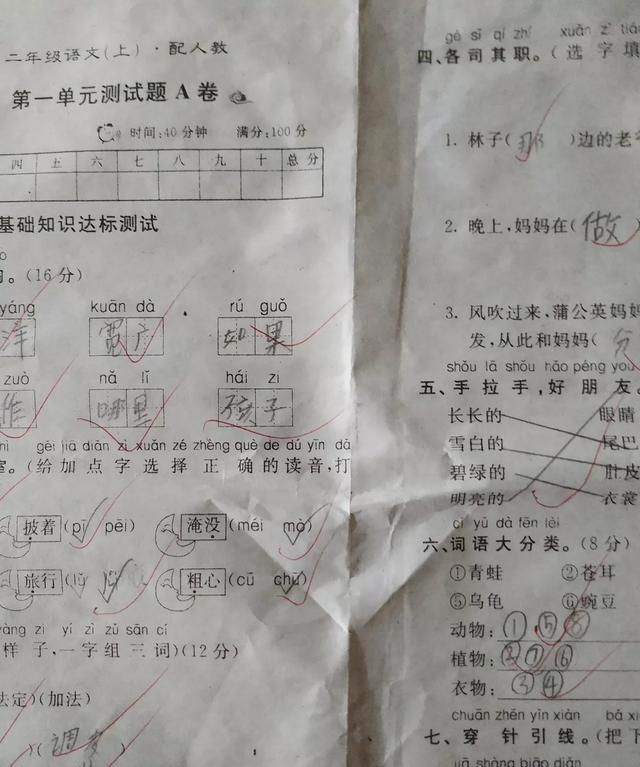 二年级语文(上)·配人教
第一单元测试题 A 卷
时间:40分钟 满分:100分
四 五 六 七 八 九 十 总分
基础知识达标测试
。(16分)
yáng kuān dà rú guǒ
洋 宽广 如果
zuò nǎ lǐ hái zi
作 哪里 孩子
gěi jiā diǎn zì xuǎn zé zhèng què de dú yīn dǎ
。(给加点字选择正确的读音,打
披着(pī pēi) 淹没(méi mò)
旅行(lǚ 粗心(cū chū)
yàng zi yí zì zǔ sān cí
样子,一字组三词)(12分)
法定)(加法)
)(调
gè sī qí zhí xuǎn zì tián
四、各司其职。(选字填
1. 林子(那)边的老
2. 晚上,妈妈在(做)
3. 风吹过来,蒲公英妈妈
发,从此和妈妈(分
shǒu lā shǒu hǎo péng you
五、手拉手,好朋友。
长长的 眼睛
雪白的 尾巴
碧绿的 肚皮
明亮的 衣裳
cí yǔ dà fēn lèi
六、词语大分类。(8分)
①青蛙 ②苍耳
⑤乌龟 ⑥豌豆
动物: ① ⑤ ⑧
植物: ② ⑦ ⑥
衣物: ③ ④
chuān zhēn yǐn xiàn bǎ xi
七、穿针引线。(把下
jiā shàng biāo diǎn